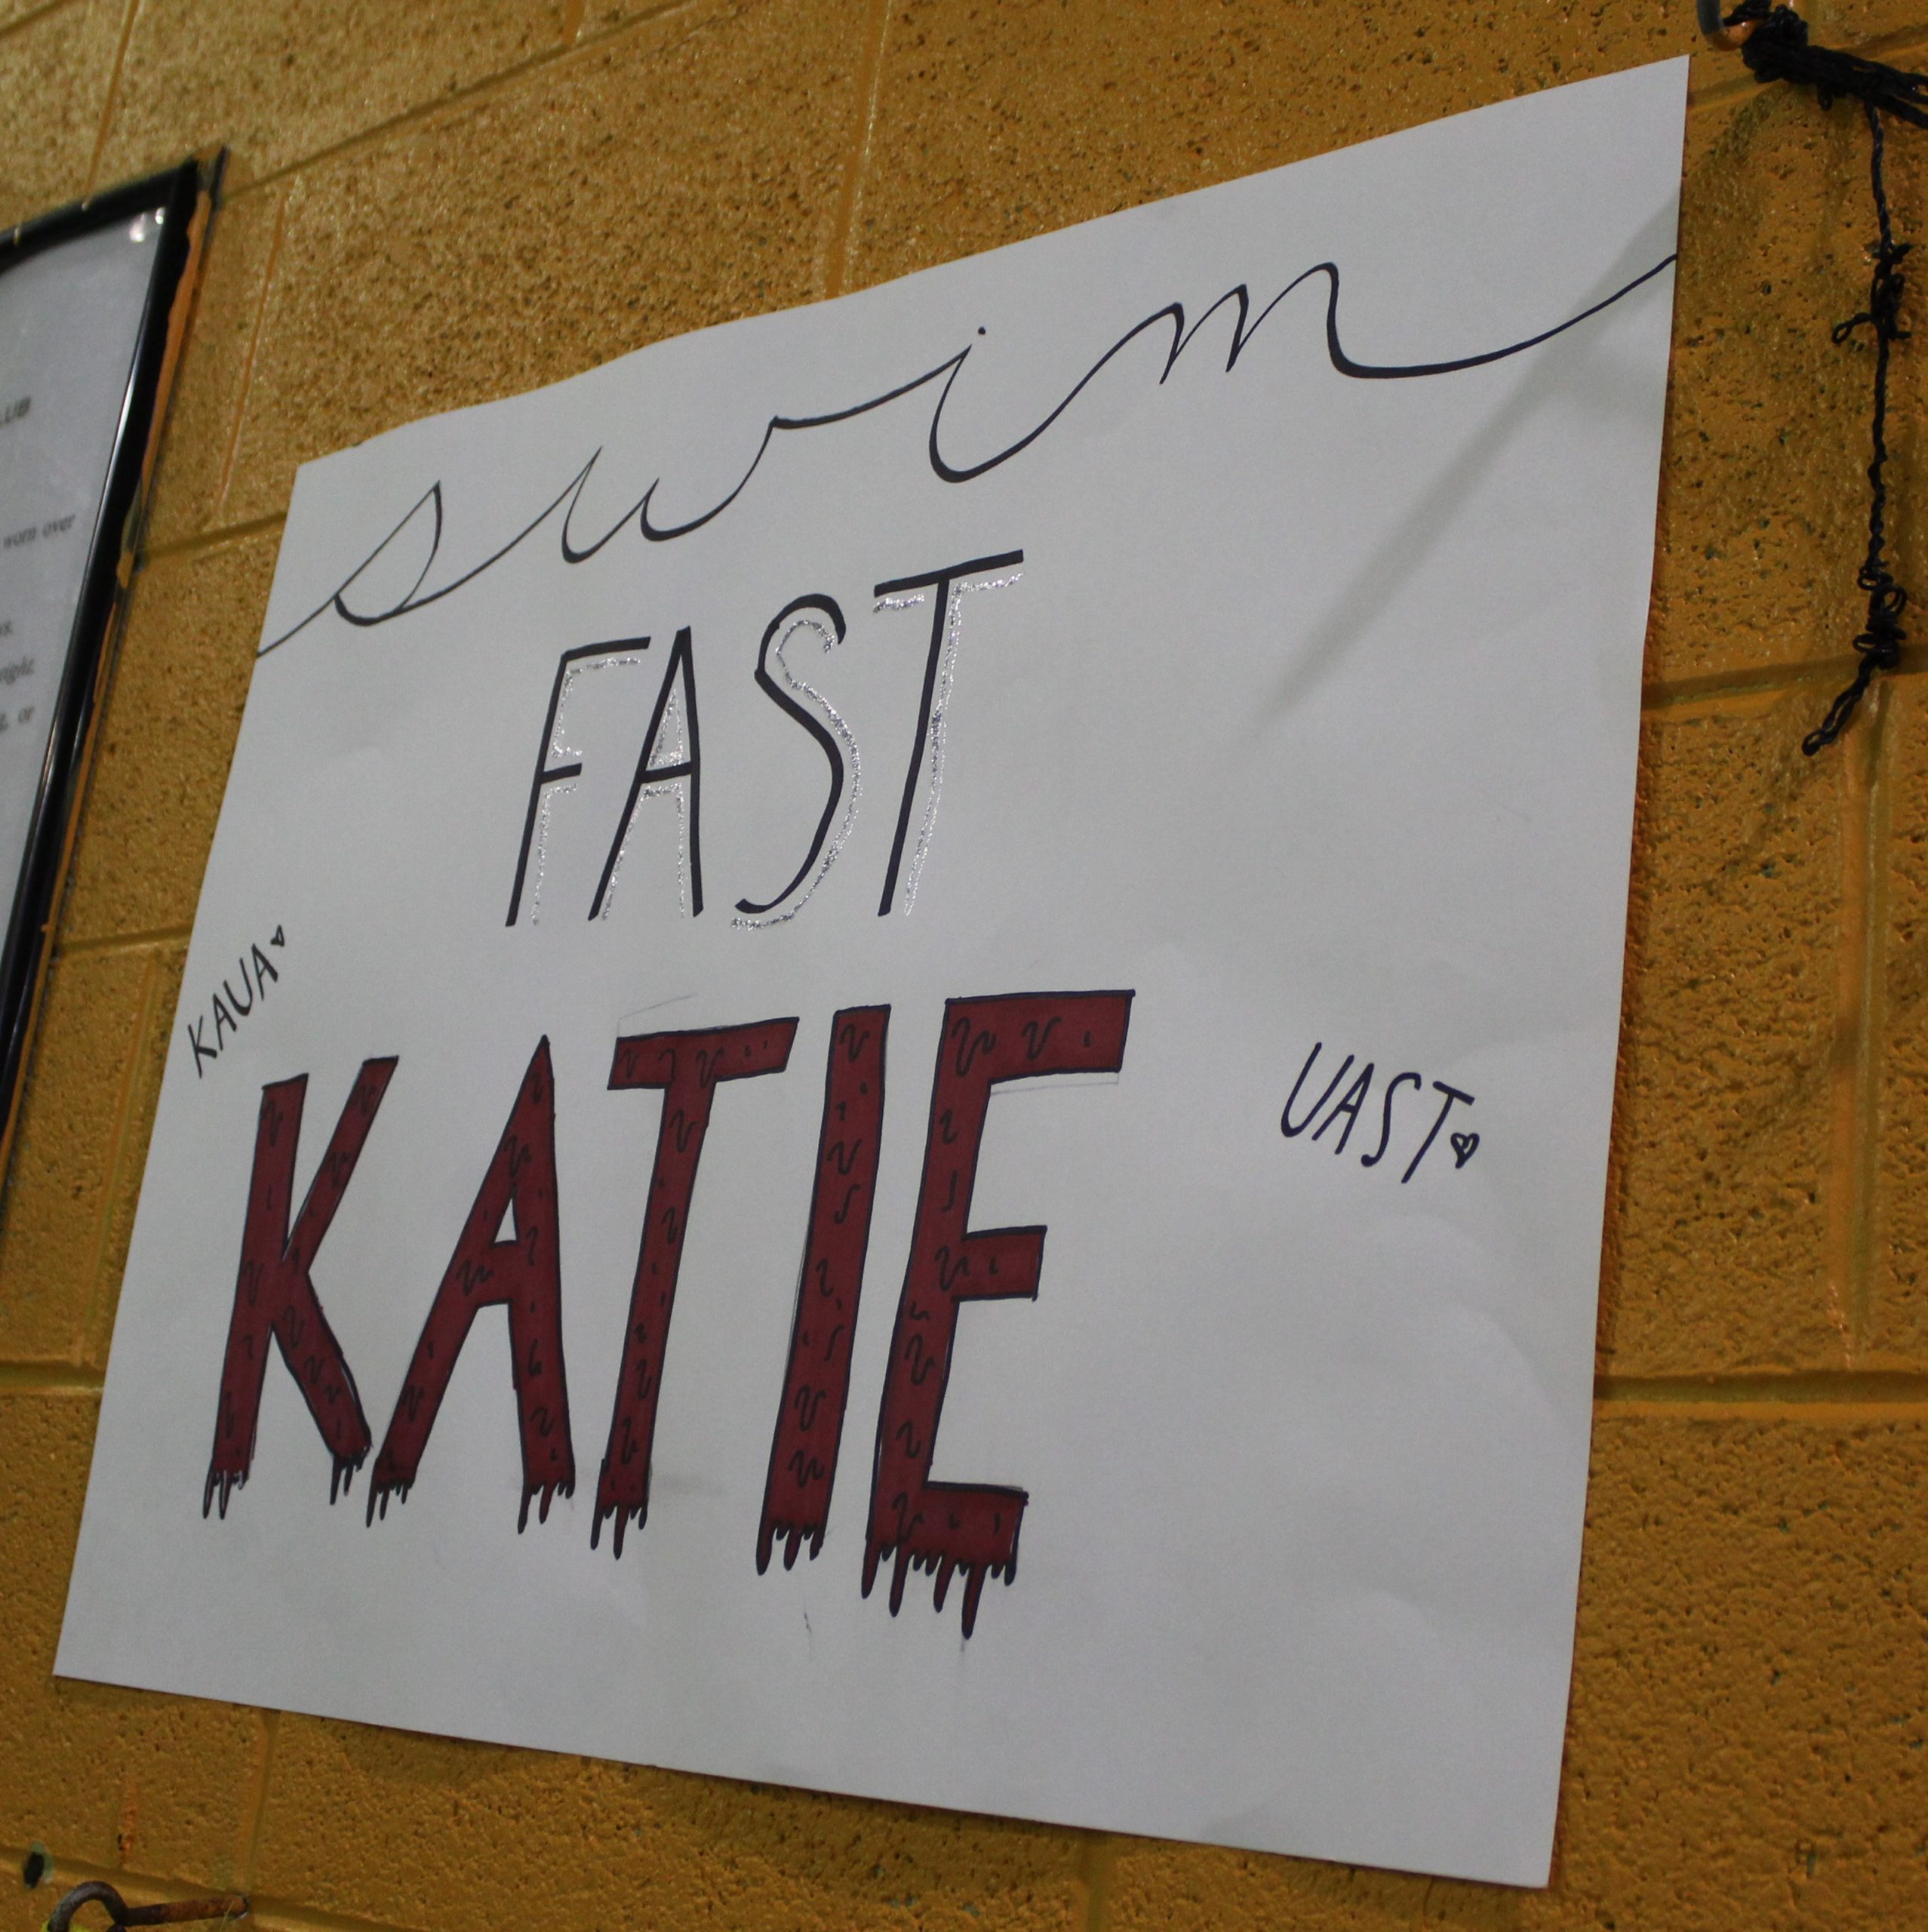 swim
FAST
KAUA
KATIE
UAST
LUB
worn over
or